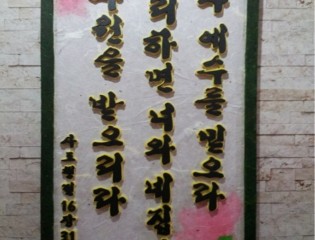 예수를 믿으라
리하면 너와 네집
원을 받으리라
사도행전 16장31